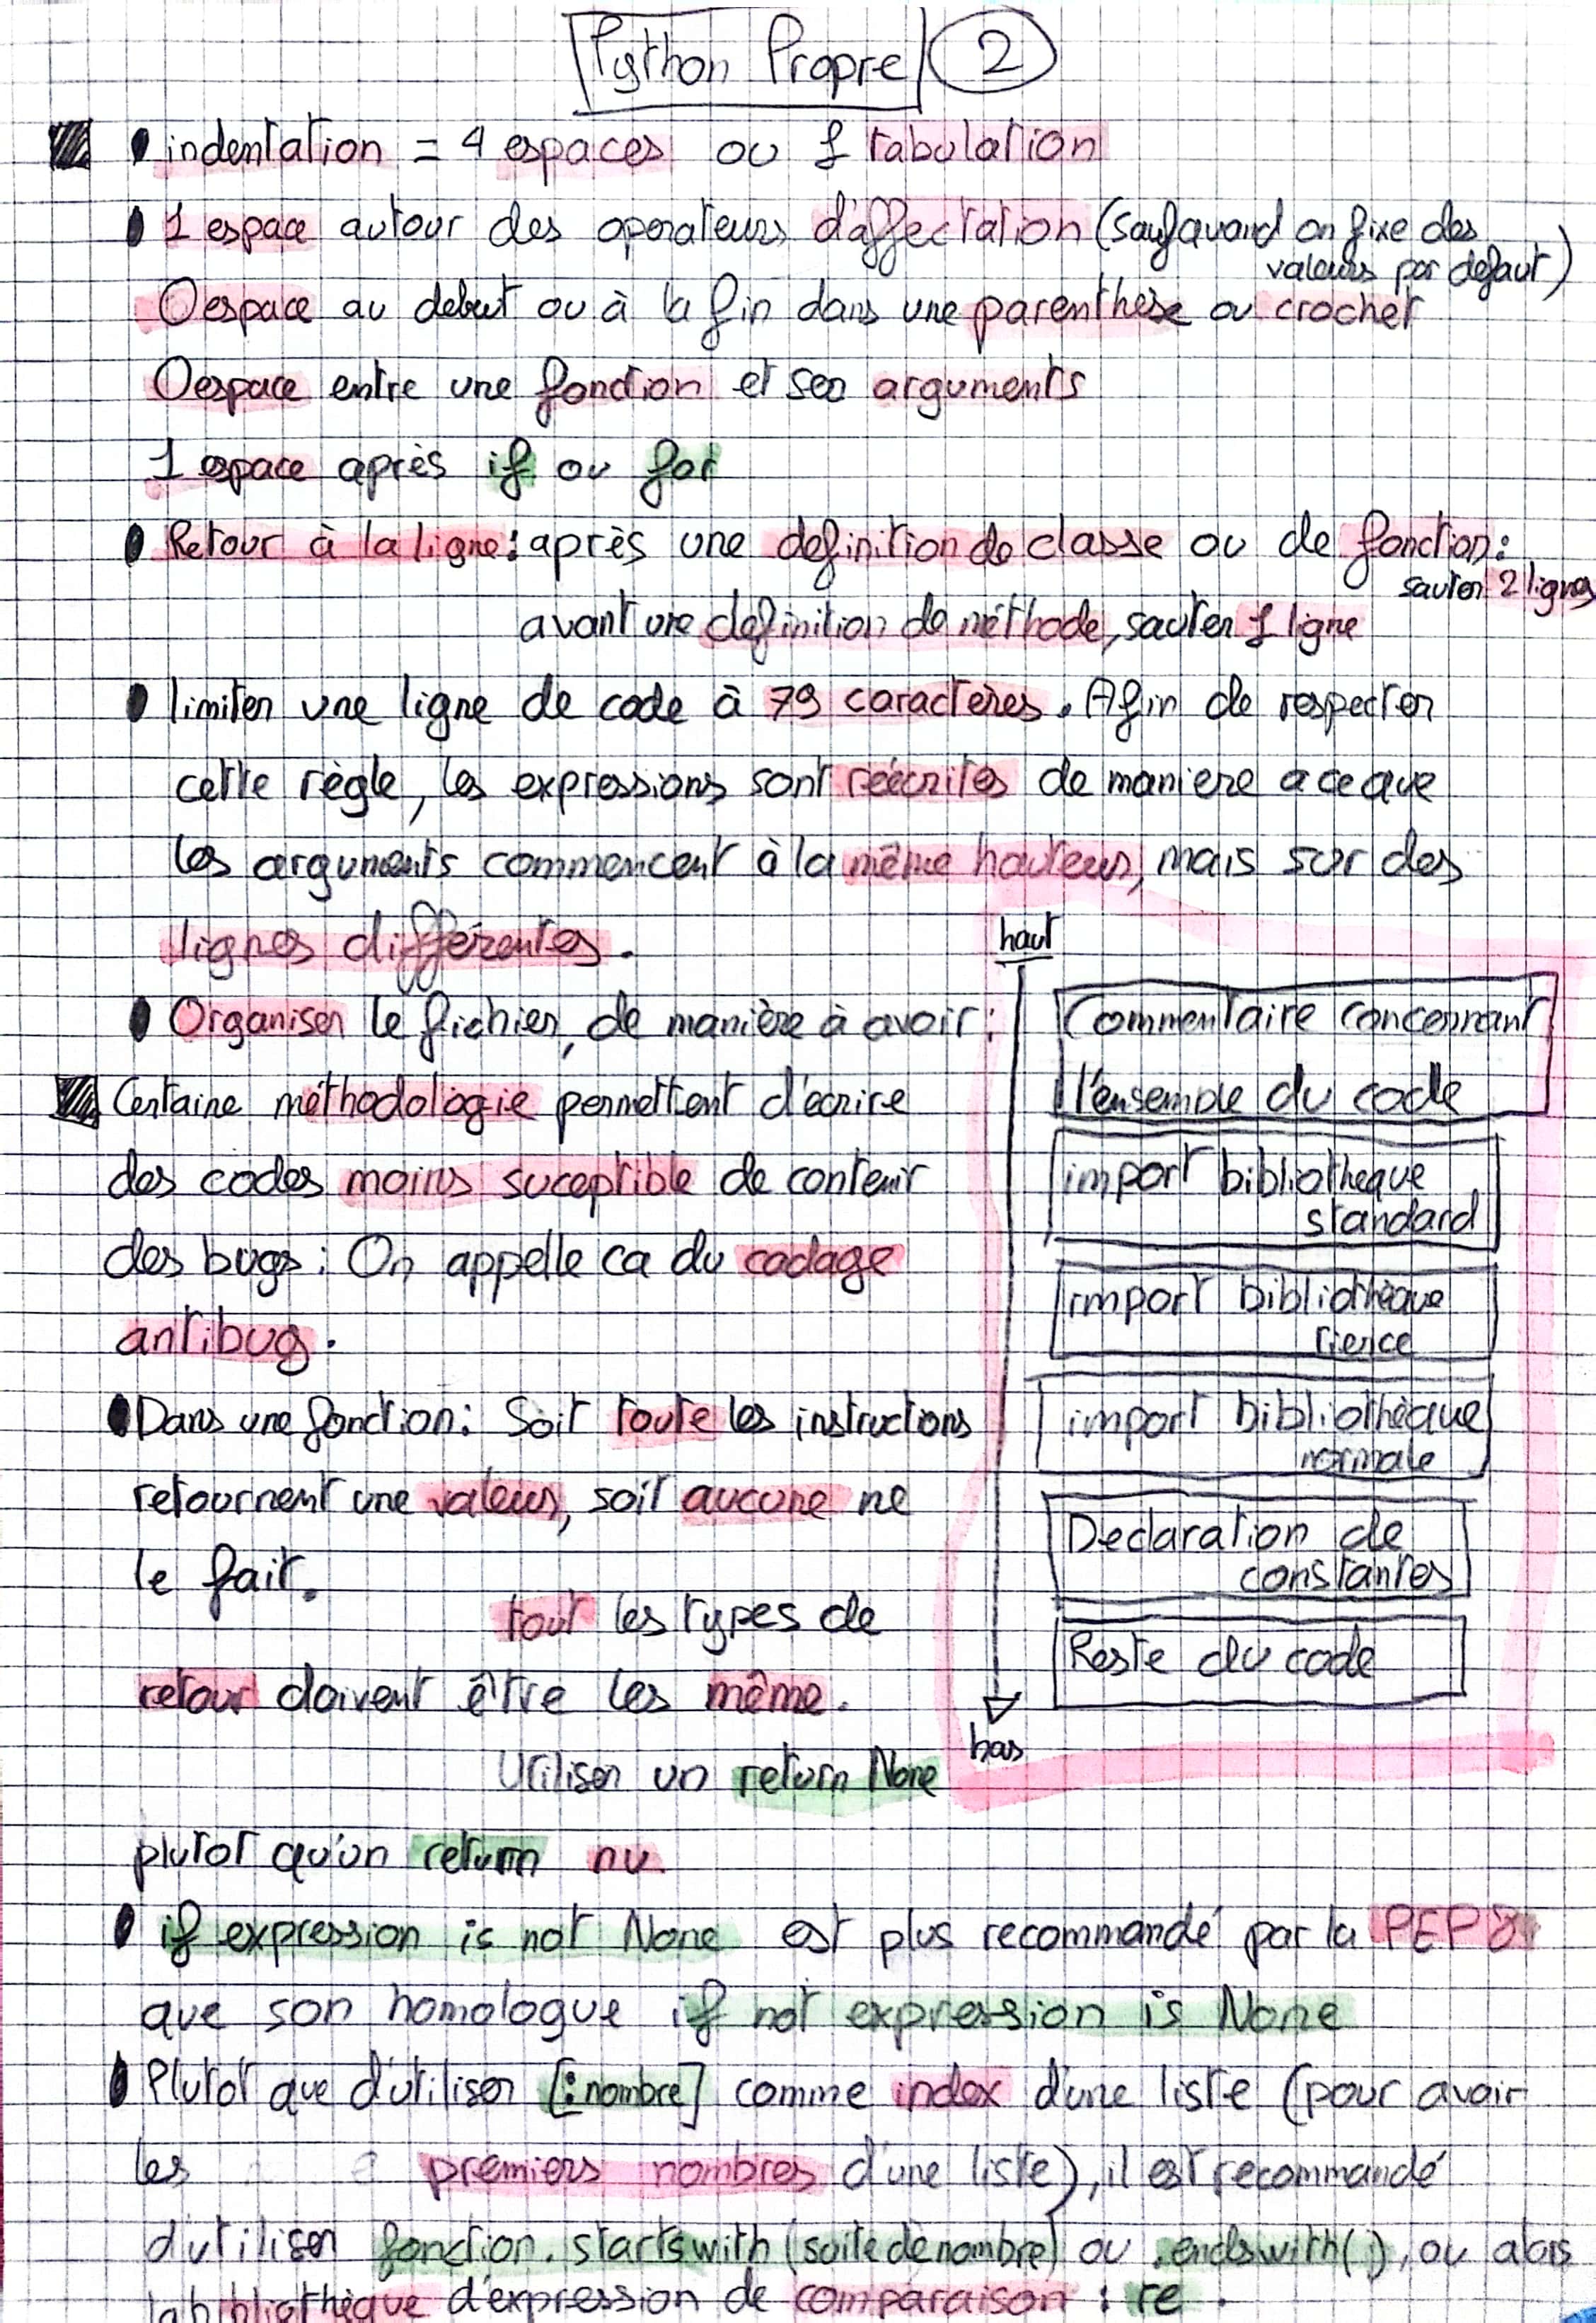 Python Propre 2
• indentation = 4 espaces ou 1 tabulation
• 1 espace autour des operateurs d'affectation (sauf quand on fixe des
valeurs par defaut)
0 espace au debut ou à la fin dans une parenthèse ou crochet
0 espace entre une fonction et ses arguments
1 espace après if ou for
• Retour à la ligne : après une definition de classe ou de fonction :
sauter 2 lignes
avant une definition de méthode, sauter 1 ligne
• limiter une ligne de code à 79 caractères. Afin de respecter
cette règle, les expressions sont réécrites de maniere a ce que
les arguments commencent à la même hauteur, mais sur des
lignes différentes.
• Organiser le fichier, de manière à avoir :
haut
Commentaire concernant
l'ensemble du code
import bibliotheque
standard
import bibliothèque
tierce
import bibliothèque
normale
Declaration de
constantes
Reste du code
bas
Certaine méthodologie permettent d'écrire
des codes moins suceptible de contenir
des bugs : On appelle ca du codage
antibug.
• Dans une fonction : Soit toute les instructions
retournent une valeur, soit aucune ne
le fait.
tout les types de
retour doivent être les même.
Utiliser un return None
plutot qu'un return nu
• if expression is not None est plus recommandé par la PEP 8
que son homologue if not expression is None
• Plutot que d'utiliser [:nombre] comme index d'une liste (pour avoir
les premiers nombres d'une liste), il est recommandé
d'utiliser fonction.startswith(suite de nombre) ou .endswith( ), ou alors
la bibliothèque d'expression de comparaison : re.